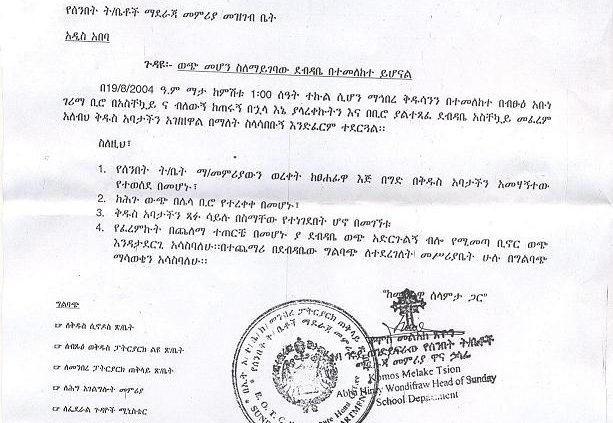 የሰንበት ት/ቤቶች ማደራጃ መምሪያ መዝገብ ቤት
አዲስ አበባ
ጉዳዩ፡- ወጭ መሆን ስለማይገባው ደብዳቤ በተመለከተ ይሆናል
በ19/8/2004 ዓ.ም ማታ ከምሽቱ 1:00 ሰዓት ተኩል ሲሆን ማኅበረ ቅዱሳንን በተመለከተ በብፁዕ አቡነ
ገሪማ ቢሮ በአስቸኳይ ና ብለውኝ ከጠሩኝ በኋላ እኔ ያላረቀኩትን እና በቢሮ ያልተጻፈ ደብዳቤ አስቸኳይ መፈረም
አለብህ ቅዱስ አባታችን አዝዘዋል በማለት ስላሳቡኝ እንድፈርም ተደርጓል።
ስለዚህ፣
1. የሰንበት ት/ቤት ማ/መምሪያውን ወረቀት ከፀሐፊዋ እጅ በግድ በቅዱስ አባታችን አመሃኝተው
የተወሰደ በመሆኑ፣
2. ከሕጉ ውጭ በሌላ ቢሮ የተረቀቀ በመሆኑ፣
3. ቅዱስ አባታችን ጻፉ ሳይሉ በስማቸው የተነገደበት ሆኖ በመገኘቱ
4. የፈረምኩት በጨለማ ተጠርቼ በመሆኑ ያ ደብዳቤ ወጭ አድርጉልኝ ብሎ የሚመጣ ቢኖር ወጭ
እንዳታደርጊ አሳስባለሁ።በተጨማሪ በደብዳቤው ግልባጭ ለተደረገለት መሥሪያቤት ሁሉ በግልባጭ
ማሳወቄን አሳስባለሁ።
ግልባጭ
ለቅዱስ ሲኖዶስ ጽ/ቤት
ለብፁዕ ወቅዱስ ፓትርያርክ ልዩ ጽ/ቤት
ለመንበረ ፓትርያርክ ጠቅላይ ጽ/ቤት
ለሕግ አገልግሎት መምሪያ
ለፌደራል ጉዳዮች ሚኒስቴር
ሰላምታ ጋር"
መልአከ ጽዮን
የሰንበት ት/ቤቶች
መምሪያ ዋና ኃላፊ
Komos Melake Tsion
Abba Hiruy Wondifraw Head of Sunday
School Department